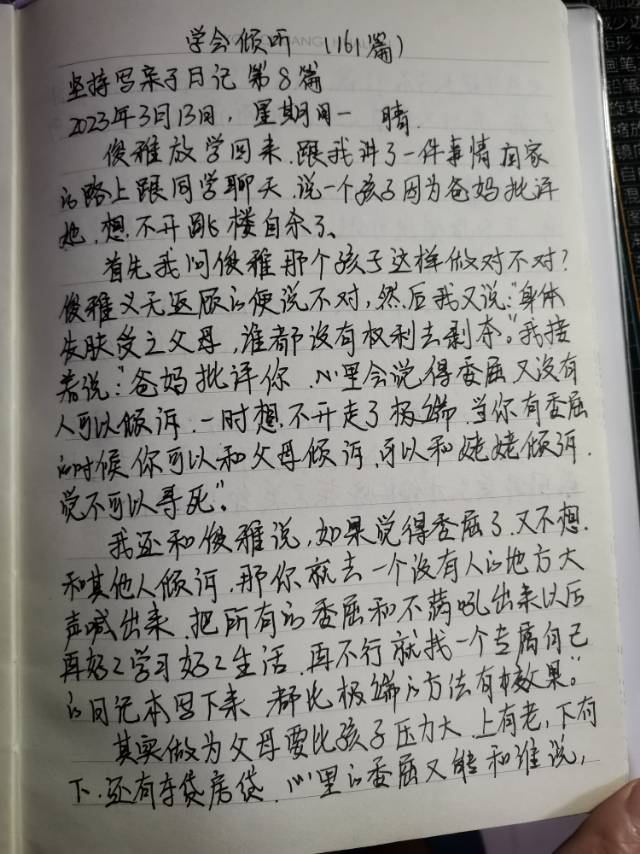 学会倾听 (161篇)
坚持写亲子日记 第8篇
2023年3月13日, 星期一 晴.
俊雅放学回来.跟我讲了一件事情.回家
的路上跟同学聊天.说一个孩子因为爸妈批评
她.想不开跳楼自杀了、
首先我问俊雅那个孩子这样做对不对?
俊雅义无返顾的便说不对,然后我又说:"身体
发肤受之父母,谁都没有权利去剥夺。"我接
着说:"爸妈批评你 心里会觉得委屈又没有
人可以倾诉.一时想不开走了极端.当你有委屈
的时候你可以和父母倾诉.可以和姥姥倾诉.
觉不可以寻死"。
我还和俊雅说,如果觉得委屈了.又不想.
和其他人倾诉.那你就去一个没有人的地方大
声喊出来.把所有的委屈和不满吼出来以后
再好好学习好好生活.再不行就找一个专属自己
的日记本写下来 都比极端的方法有效果。"
其实做为父母要比孩子压力大.上有老,下有
下.还有车贷房贷.心里的委屈又能和谁说,